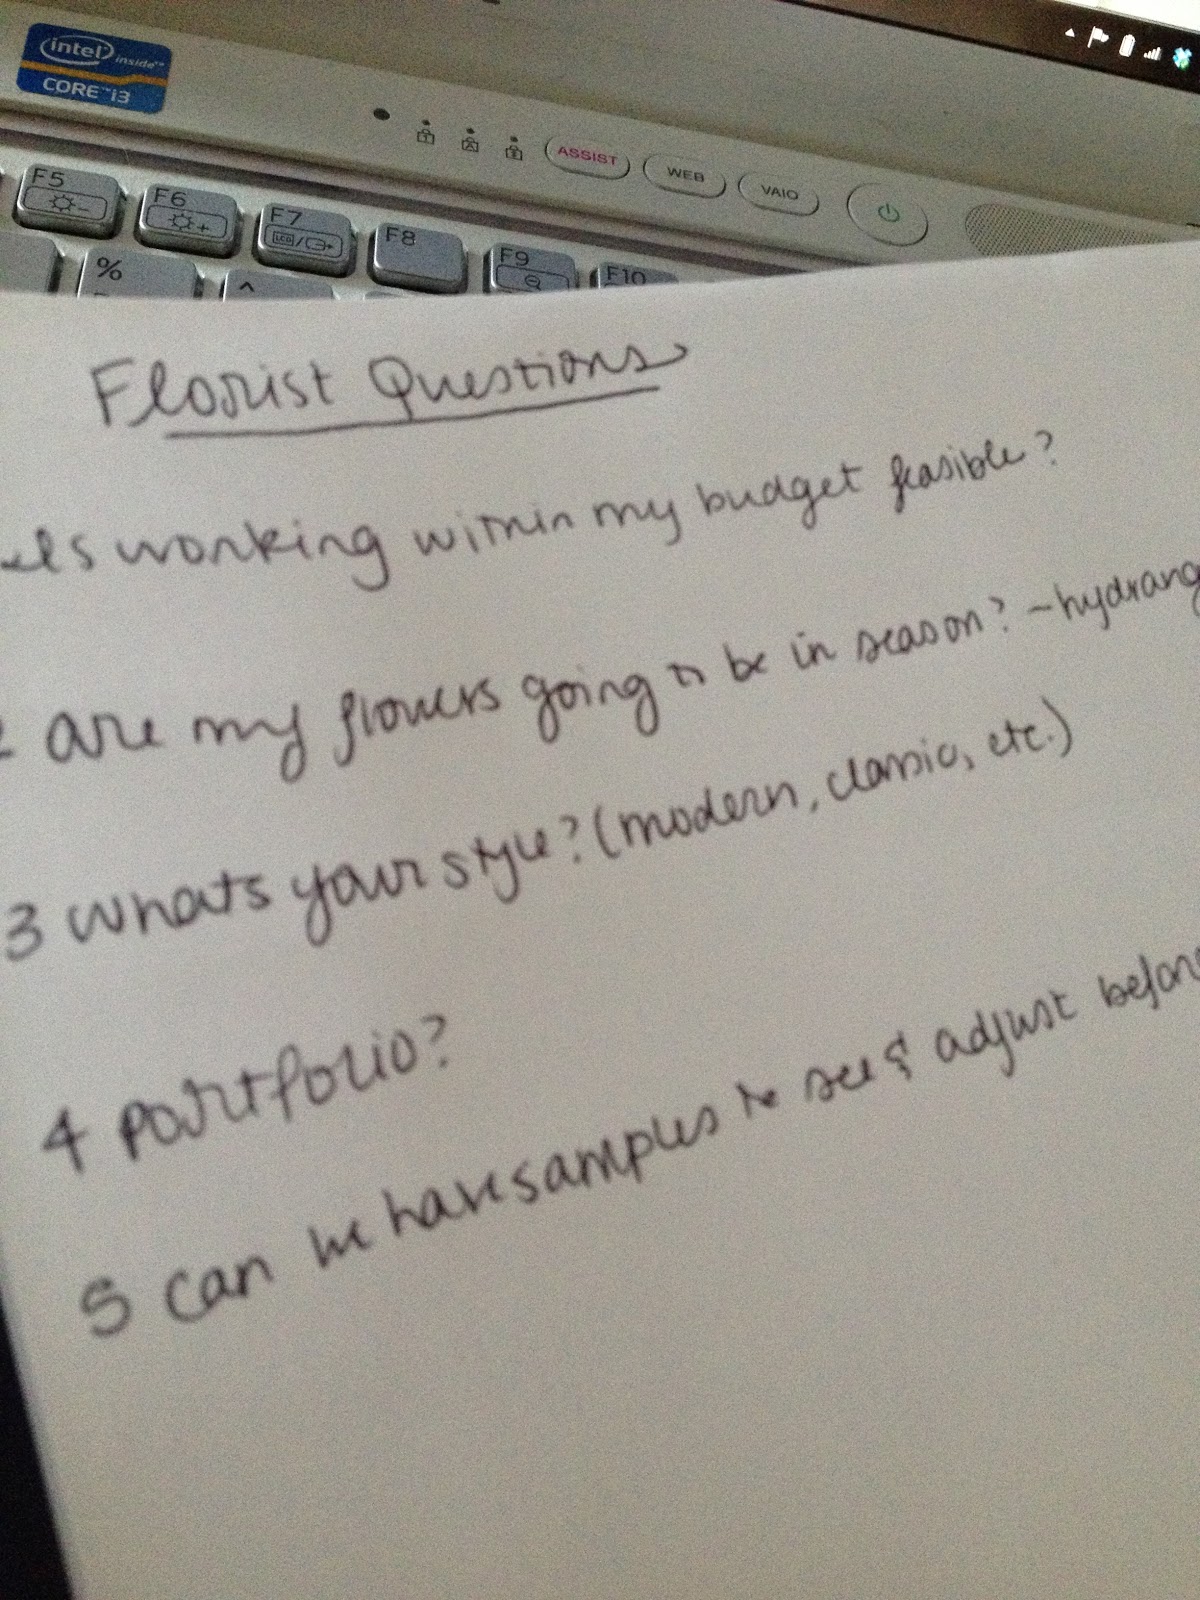 intel inside™
CORE™ i3
ASSIST
WEB
VAIO
F5
F6
F7
LCD/
F8
F9
F10
%
^
Florist Questions
Is working within my budget feasible?
2 are my flowers going to be in season? - hydrang
3 Whats your style? (modern, classic, etc.)
4 portfolio?
5 can we have samples to see & adjust before